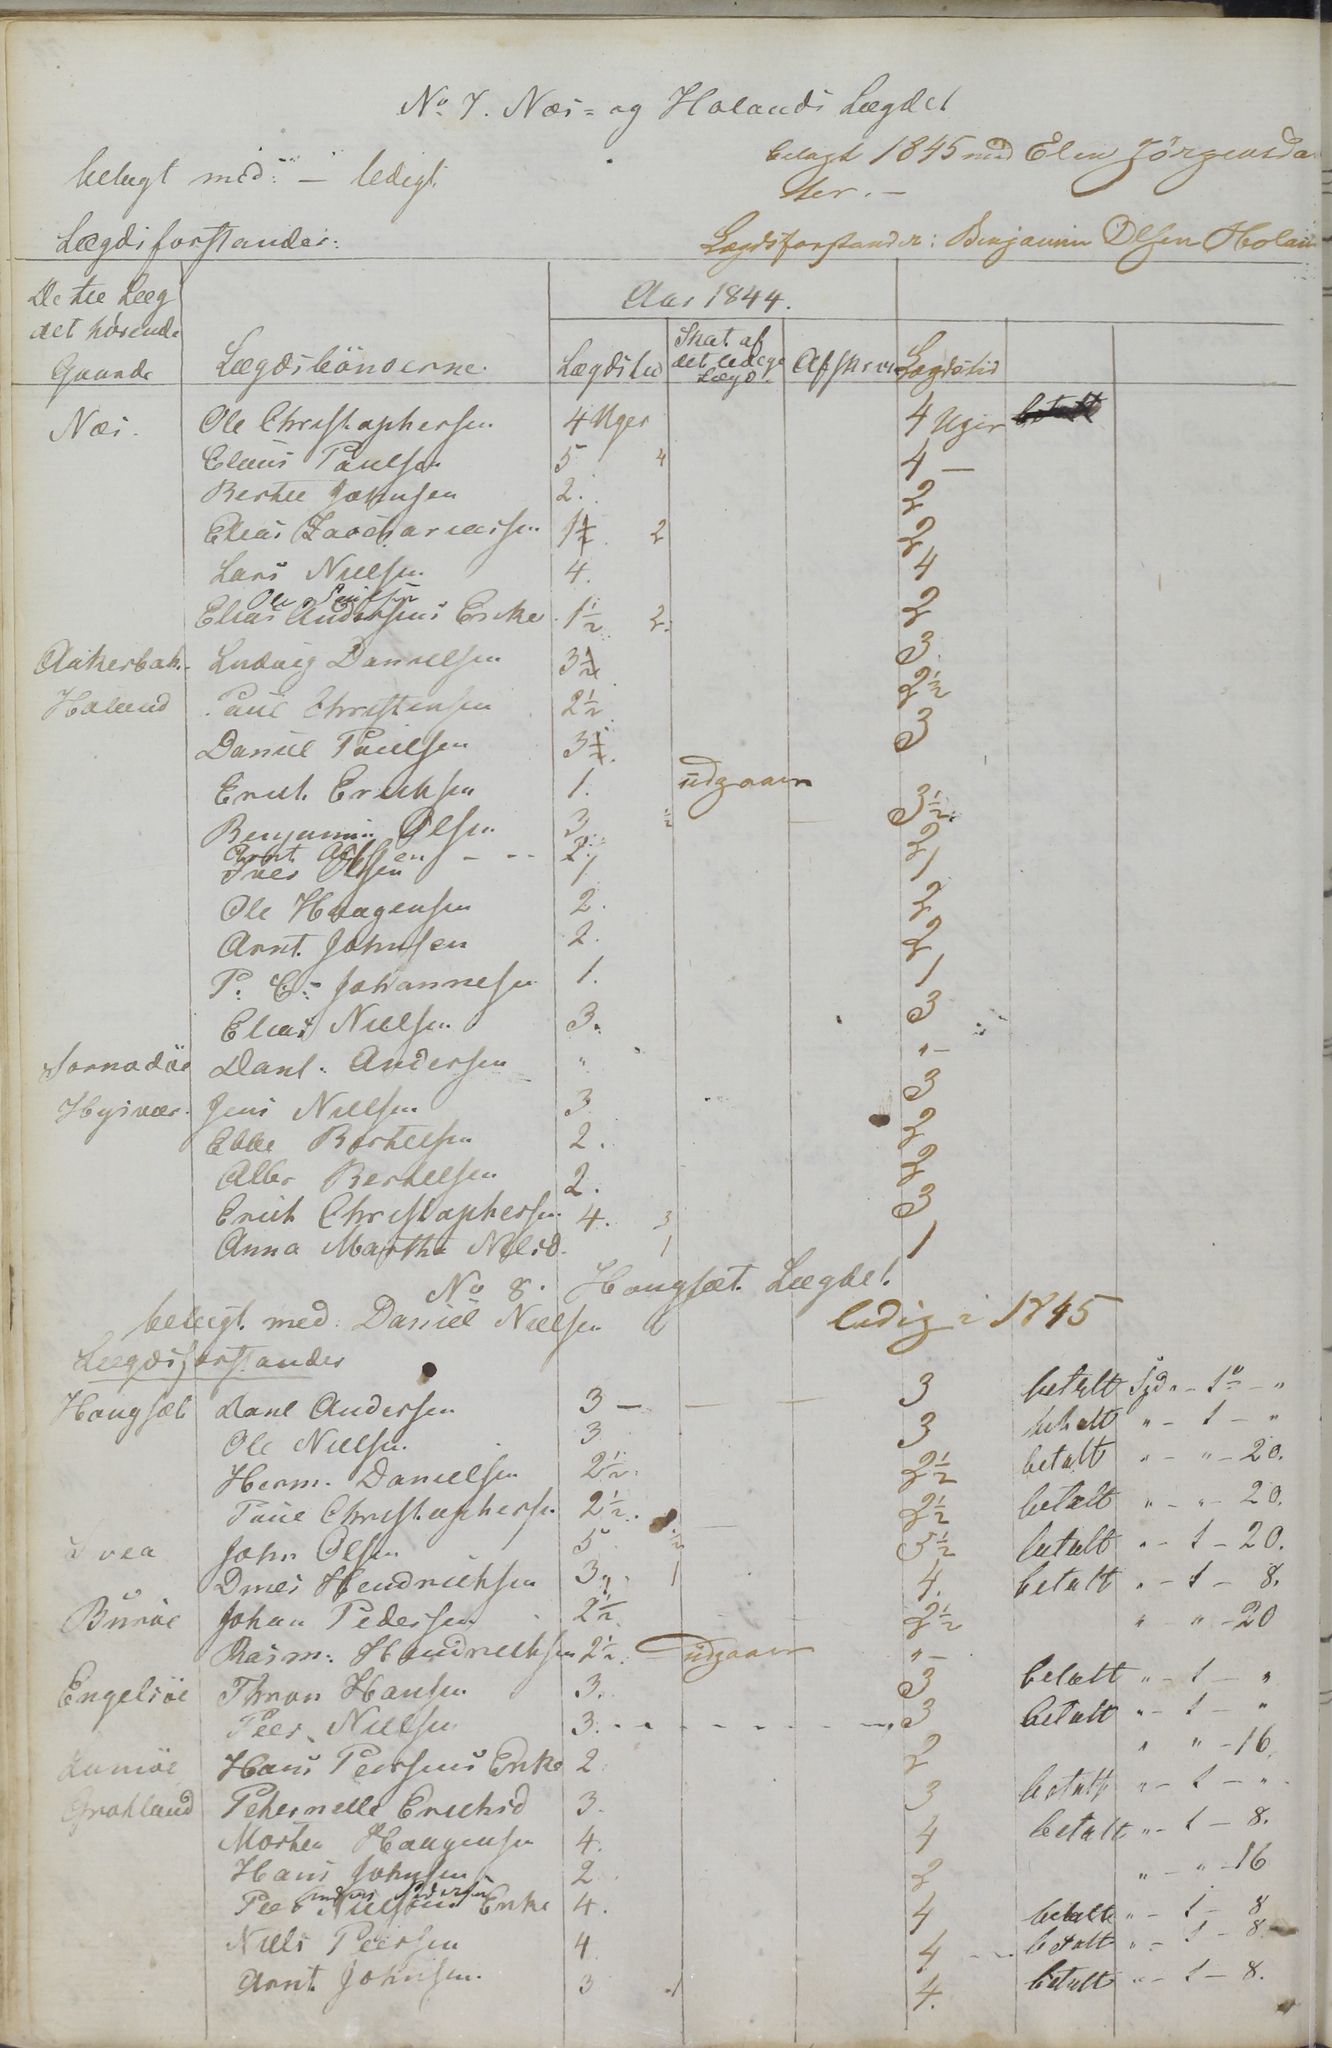 No. 7. Næs- og Holands Lægdet
belagt med: - ledigt.
belagt 1845 med Elen Jörgensda
ter. -
Lægdsforstander:
Lægdsforstander: Benjamin Olsen Holan
De tee Læg
det hörende
Gaarde
Lægdsbönderne.
Aar 1844.
Lægdstid
Skat af
det ledige
Lægd.
Afskrevet
Lægdstid
Næs. Ole Christophersen 4 Uger 4 Uger betalt
Claus Paulsen 5 4 4 -
Bertee Johnsen 2. 2
Elias Zachariassen 1½ 2 2
Lars Nielsen 4. 4
Ole Paulsen
Elias Andersens Encke 1½ 2. 2
Aakerbak. Ludvig Danielsen 3½ 3
Holand Paul Christensen 2½ 2½
Daniel Paulsen 3½. 3
Erich Erichsen 1. udgaaer
Benjamin Olsen 3 ½ 3½.
Arnt Olsen - - - 2. 2
Iver Olsen 1 1
Ole Haagensen 2. 2
Arnt. Johnsen 2. 2
P. C. Johannesen 1. 1
Elias Nielsen 3. 3
Danl. Andersen " " -
Jens Nielsen 3 3
Ebbe Bertelsen 2. 2
Alber Bertelsen 2. 2
Erich Christophersen 4. 3 3
Anna Martha Nilsd. 1 1
No 8. Hougsæt Lægdet.
belagt. med. Daniel Nielsen
ledig i 1845
Lægdsforstander
Hougsæt Danl Andersen 3 - - - 3 betalt Spd " - 1 - "
Ole Nielsen 3 3 betalt " - 1 - "
Herm. Danielsen 2½. 2½ betalt " - " - 20.
Paul Christophersen 2½. 2½ betalt " - " - 20.
John Olsen 5 ½ 5½ betalt " - 1 - 20.
Dines Hendrichsen 3. 1 4. betalt " - 1 - 8.
Buröe Johan Pedersen 2½ 2½ " " - 20
Rasm. Hendrichsen 2½. udgaaer " -
Engelöe Thron Hansen 3. 3 betalt " - 1 - "
Peer Nielsen 3. - - - - - - - - 3 betalt " - 1 - "
Hans Peersens Enke 2 2 " " - 16.
Grøhland Pehernelle Erichsd 3. 3 betalt " - 1 - "
Morten Haagensen 4. 4 betalt " - 1 - 8.
Hans Johnsen 2 2 " - " - 16
Anders Pedersen
Peer Nielsens Enke 4. 4 betalt " - 1 - 8
Niels Peersen 4 4 - - betalt " - 1 - 8
Arnt Johnsen. 3 1 4. betalt " - 1 - 8.